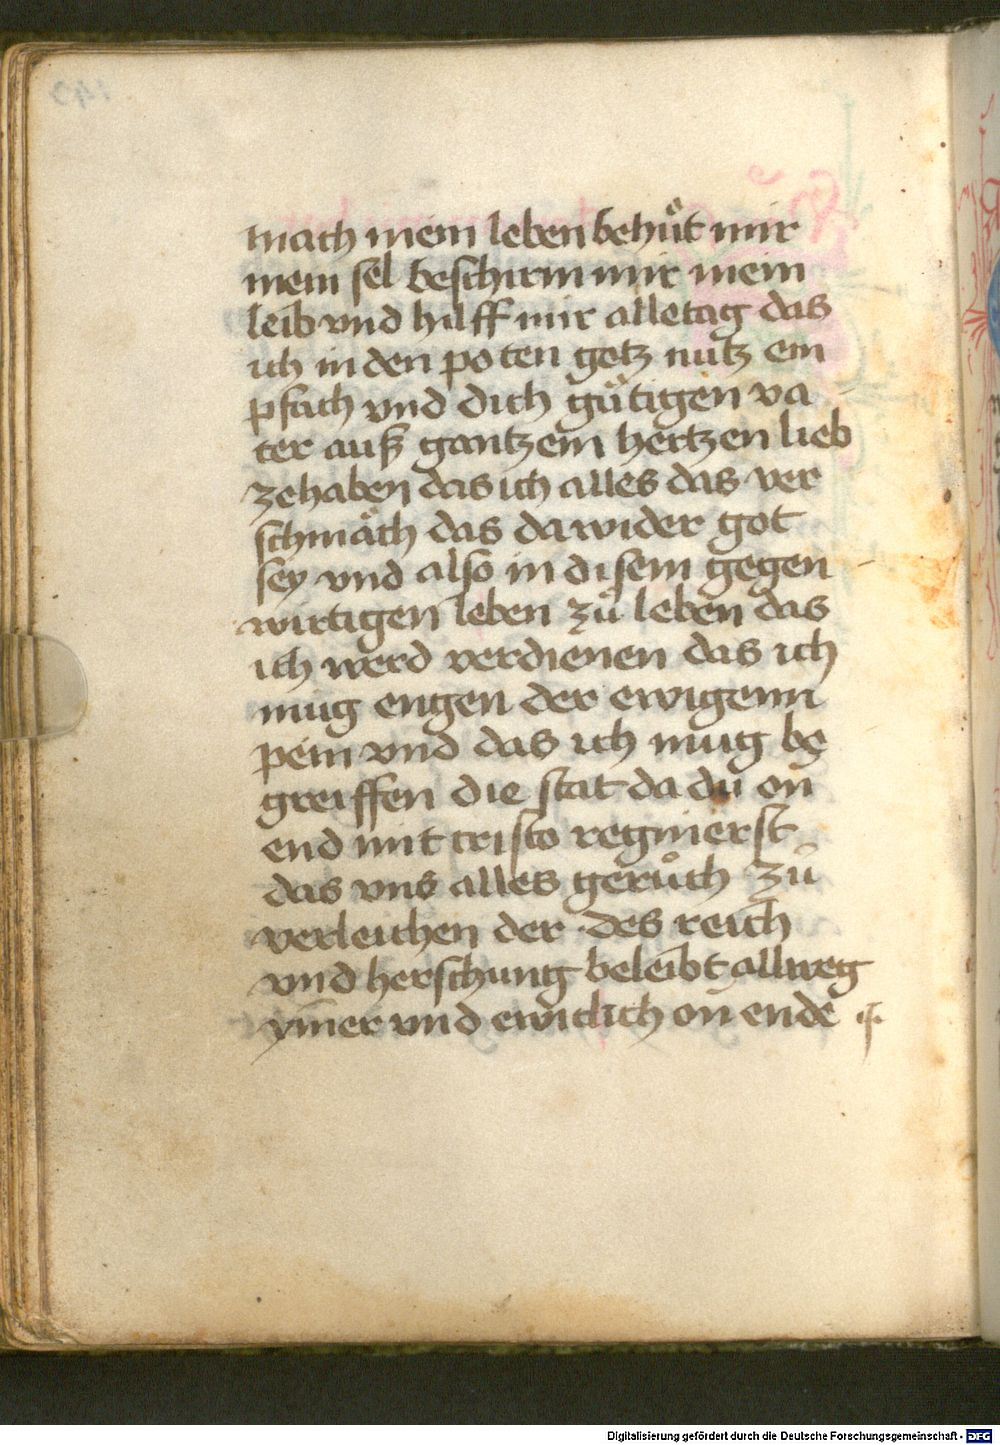 mach mein leben behuͤt mir
mein sel beschirm mir mein
leib vnd hilff mir alletag das
ich in den poten gotz nutz em
pfach vnd dich guͤtigen va
ter auß gantzem hertzen lieb
zehaben das ich alles das ver
schmaͤch das da wider got
sey vnd also in disem gegen
wirtigen leben zuͦ leben das
ich werd verdienen das ich
mug engen der ewigenn
pein vnd das ich mug be
greiffen die stat da du on
end mit cristo regnierst
das vns alles geruͦch zuͦ
verleichen der des reich
vnd herschung beleibt allweg
ym̄er vnd ewiclich on ende
Digitalisierung gefördert durch die Deutsche Forschungsgemeinschaft - DFG